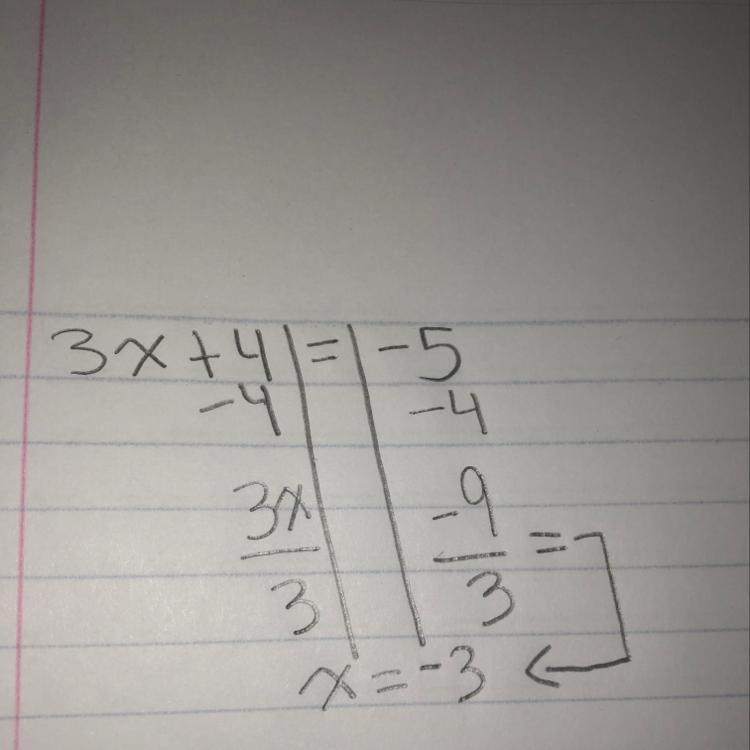 3x+4 = -5
-4 -4
3x -9 =
3 3
x = -3